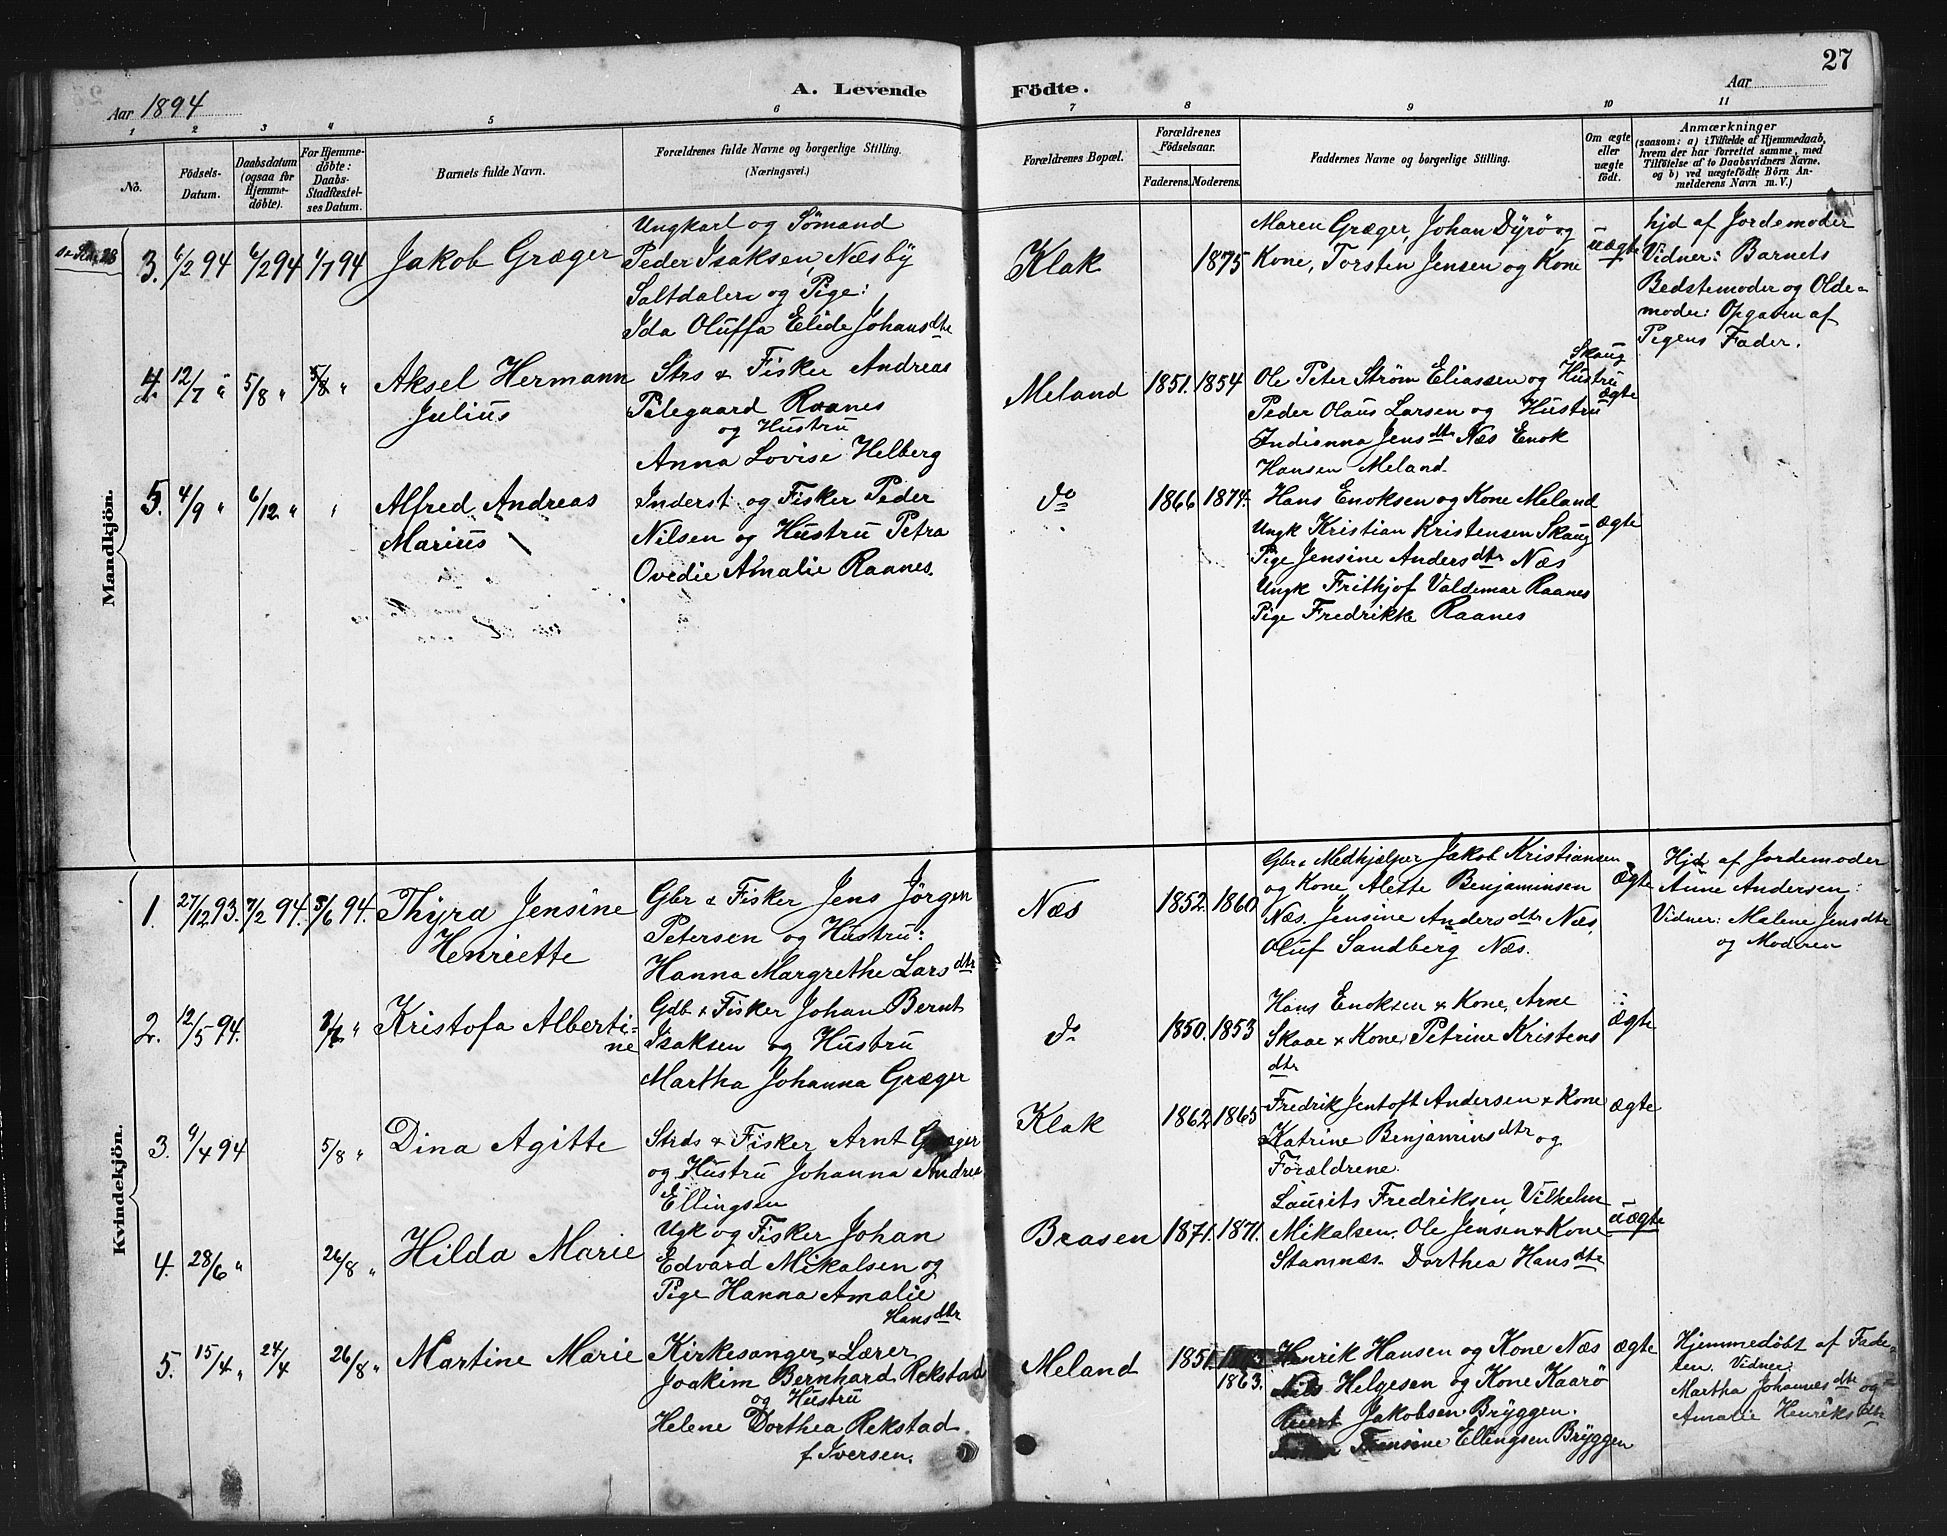 27
Aar 1894
A. Levende Födte.
Aar
1 2 3 4 5 6 7 8 9 10 11
No.
Födsels-Datum.
Daabsdatum (ogsaa for Hjemme-döbte).
For Hjemme-döbte: Daabs-Stadfæstel-ses Datum.
Barnets fulde Navn.
Forældrenes fulde Navne og borgerlige Stilling.
(Næringsvei.)
Forældrenes Bopæl.
Forældrenes Födselsaar.
Faderens. Moderens.
Faddernes Navne og borgerlige Stilling.
Om ægte eller uægte födt.
Anmærkninger
(saasom: a) i Tilfælde af Hjemmedaab,
hvem der har forrettet samme, med
Tilföielse af to Daabsvidners Navne.
og b) ved uægtefödte Börn An-
melderens Navn m. V.)
Mandkjön.
3. 6/2 94 6/2 94 1/7 94 Jakob Græger
Ungkarl og Sömand
Peder Isaksen, Næsby
Saltdalen og Pige:
Ida Oluffa Elide Johansdtr
Klak 1875
Maren Græger, Johan Dyrö og
Kone, Torsten Jensen og Kone
uægte
hjd af Jordemoder
Vidner: Barnets
Bedstemoder og Olde-
moder: Opgaven af
Pigens Fader.
4. 12/7 " 5/8 " 5/8 " Aksel Hermann
Julius
Strs & Fisker Andreas
Pilegaard Raanes
og Hustru
Anna Lovise Helberg
Meland 1851. 1854
Skaug
Ole Peter Strøm Eliassen og Hustru
Peder Olaus Larsen og Hustru
Indianna Jensdtr Næs Enok
Hansen Meland.
ægte
5. 4/9 " 6/12 " " Alfred Andreas
Marius
Inderst og Fisker Peder
Nilsen og Hustru Petra
Ovedie Amalie Raanes.
do 1866 1874.
Hans Enoksen og Kone Meland
Ungk Kristian Kristensen Skaug
Pige Jensine Andersdtr Næs
Ungk Frithjof Valdemar Raanes
Pige Fredrikke Raanes
ægte
Kvindekjön.
1. 27/12 93. 7/2 94. 3/6 94. Thyra Jensine
Henriette
Gbr & Fisker Jens Jörgen
Petersen og Hustru:
Hanna Margrethe Larsdtr
Næs 1852. 1860
Gbr & Medhjælper Jakob Kristiansen
og Kone Alette Benjaminsen
Næs. Jensine Andersdtr Næs
Oluf Sandberg Næs.
ægte
Hjd af Jordemoder
Anne Andersen:
Vidner: Malene Jensdtr
og Moderen
2. 12/5 94. Kristofa Alberti-
ne
Gdb & Fisker Johan Bernt
Isaksen og Hustru
Martha Johanna Græger
do 1850. 1853
Hans Enoksen & Kone, Arne
Skaae & Kone, Petrine Kristens
dtr
ægte
3. 9/4 94 5/8 " Dina Agitte
Strds & Fisker Arnt Græger
og Hustru Johanna Andrea
Ellingsen
Klak 1862 1865
Fredrik Jentoft Andersen & Kone
Katrine Benjaminsdtr og
Forældrene.
ægte
4. 28/6 " 26/8 " Hilda Marie
Ugk og Fisker Johan
Edvard Mikalsen og
Pige Hanna Amalie
Hansdtr
Brasen 1871. 1871.
Laurits Fredriksen, Vilhelm
Mikalsen. Ole Jensen & Kone
Stamnæs. Dorthea Hansdtr
uægte
5. 15/4 " 24/4 26/8 " Martine Marie
Kirkesanger & Lærer
Joakim Bernhard Rekstad
og Hustru
Helene Dorthea Rekstad
f. Iversen.
Meland 1851. 1863.
Henrik Hansen og Kone Næs
Nils Helgesen og Kone Kaarö
Jakobsen Bryggen.
Ellingsen Bryggen
ægte
Hjemmedøbt af Fade-
ren. Vidner:
Martha Johannesdtr og
Amalie Henriksdtr